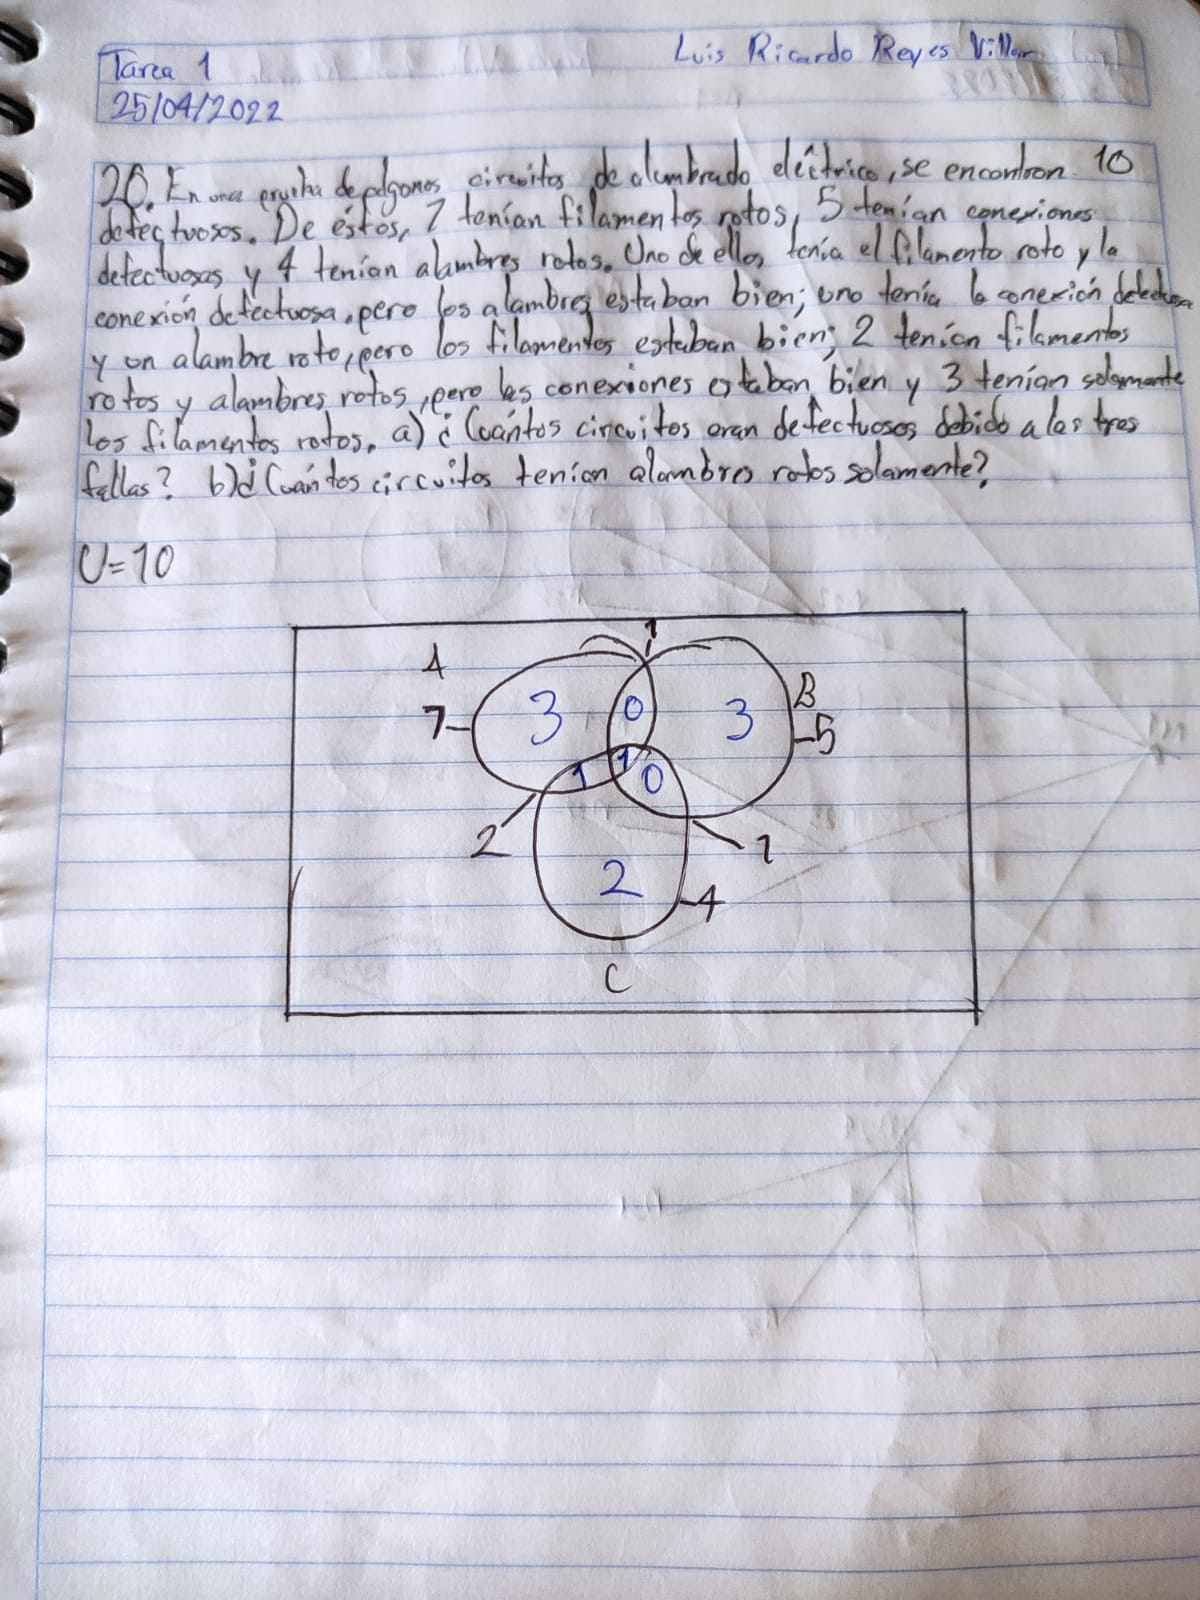 Tarea 1
Luis Ricardo Reyes Villar
25/04/2022
20. En una prueba de algonos circuitos de alumbrado eléctrico, se encontron 10
defectuosos. De éstos, 7 tenían filamentos rotos, 5 tenían conexiones
defectuosas y 4 tenían alambres rotos. Uno de ellos tenía el filamento roto y la
conexión defectuosa, pero los alambres estaban bien; uno tenía la conexión defectuosa
y un alambre roto, pero los filamentos estaban bien; 2 tenían filamentos
rotos y alambres rotos, pero las conexiones estaban bien y 3 tenían solamente
los filamentos rotos. a) ¿Cuántos circuitos eran defectuosos debido a las tres
fallas? b) ¿Cuántos circuitos tenían alambres rotos solamente?
U=10
1
A
B
7
3
0
3
5
1
1
0
2
1
2
4
C